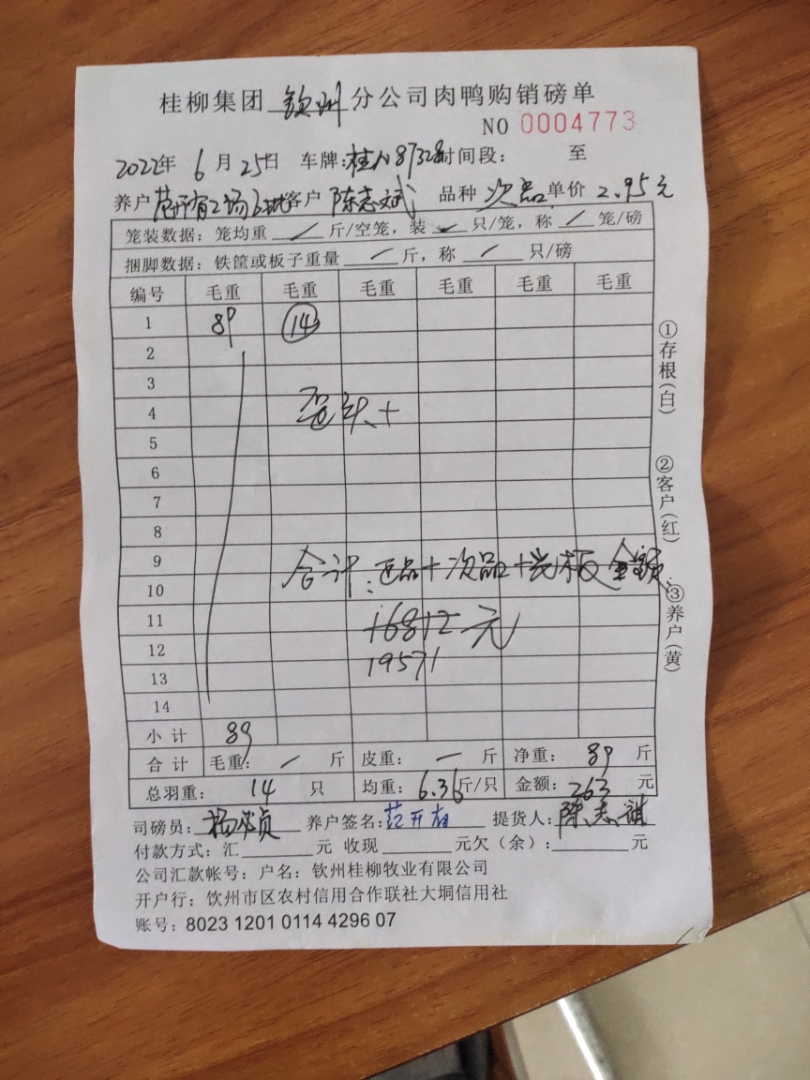 桂柳集团 钦州 分公司肉鸭购销磅单
NO 0004773
2022年 6月25日 车牌:桂N87328 时间段: 至
养户 范开有2场 客户 陈志斌 品种 次品 单价 2.95元
笼装数据:笼均重 / 斤/空笼,装 / 只/笼,称 / 笼/磅
捆脚数据:铁筐或板子重量 / 斤,称 / 只/磅
编号 毛重 毛重 毛重 毛重 毛重 毛重
1 89 14
2
3
4
5
6
7
8
9
10
11
12
13
14
歪头+
合计:正品+次品+光板 金额:
16812元
19571
小计 89
合计 毛重: / 斤 皮重: / 斤 净重: 89 斤
总羽重: 14 只 均重: 6.36斤/只 金额: 263 元
司磅员: 养户签名: 范开有 提货人: 陈志斌
付款方式:汇 元 收现 元欠(余): 元
公司汇款帐号:户名:钦州桂柳牧业有限公司
开户行:钦州市区农村信用合作联社大垌信用社
账号:8023 1201 0114 4296 07
①存根(白)
②客户(红)
③养户(黄)